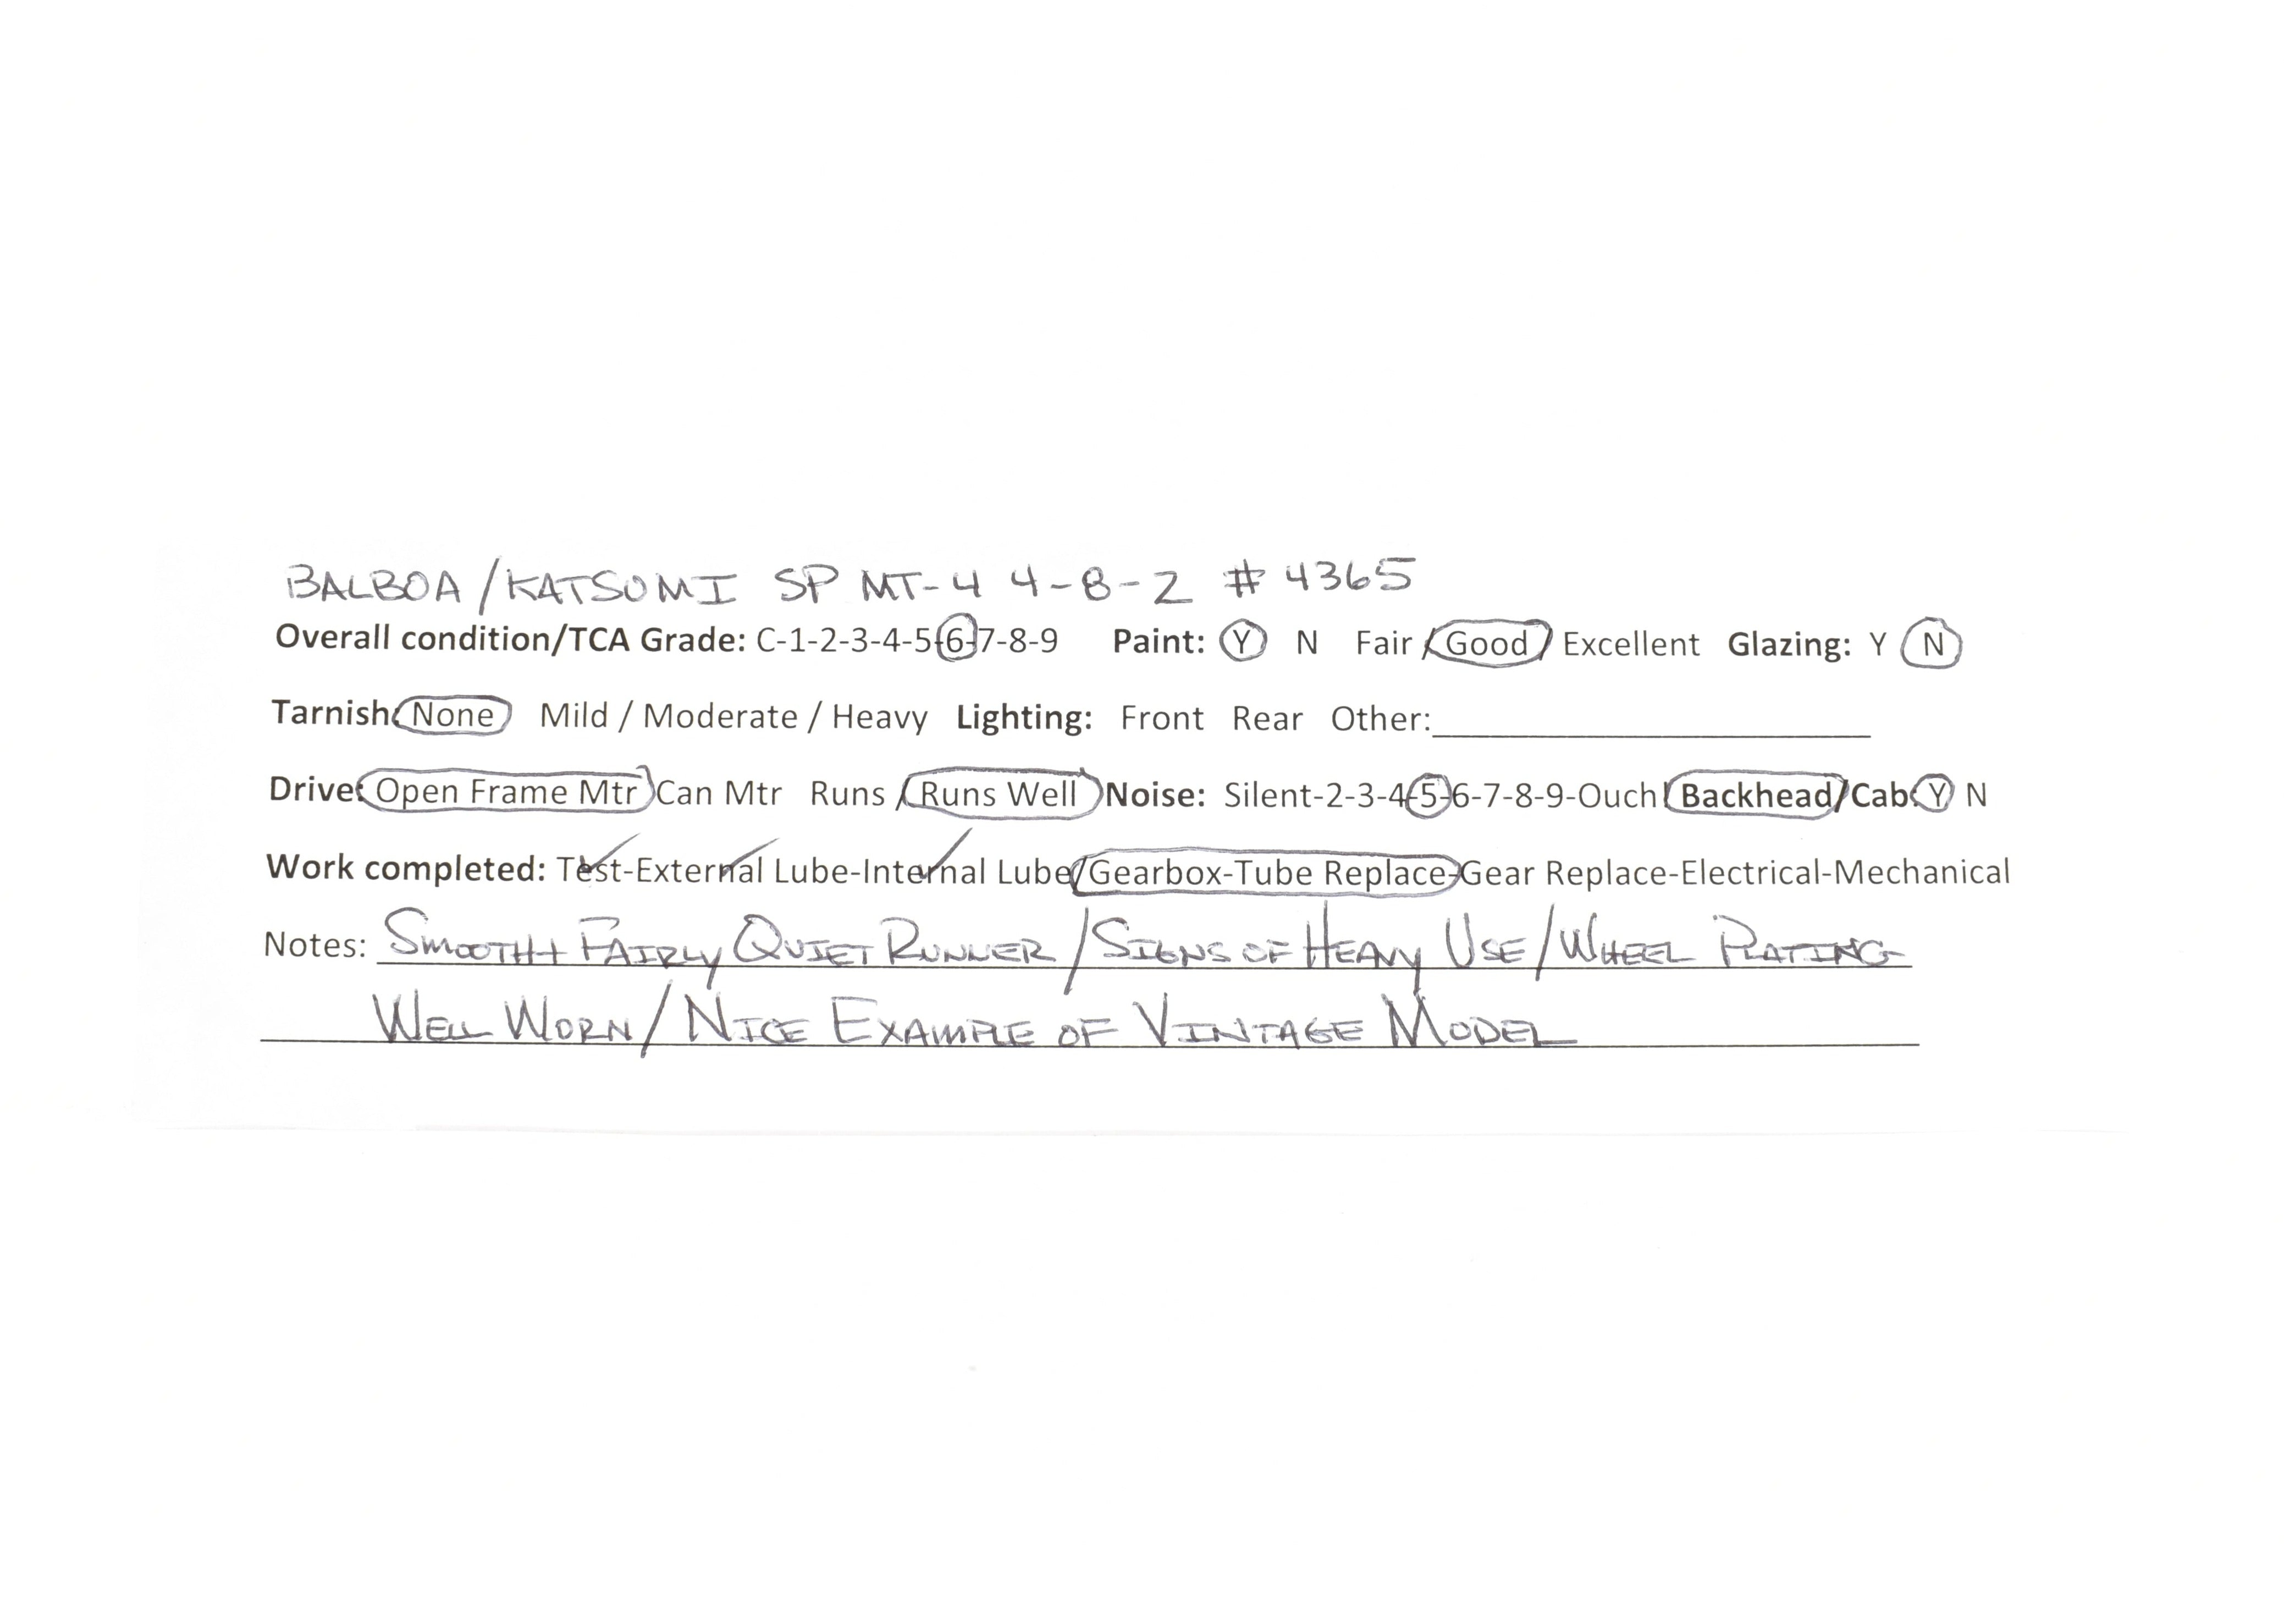 BALBOA/KATSUMI SP MT-4 4-8-2 # 4365
Overall condition/TCA Grade: C-1-2-3-4-5-6-7-8-9 Paint: Y N Fair/Good/Excellent Glazing: Y N
Tarnish: None Mild / Moderate / Heavy Lighting: Front Rear Other:
Drive: Open Frame Mtr Can Mtr Runs / Runs Well Noise: Silent-2-3-4-5-6-7-8-9-Ouch! Backhead/Cab: Y N
Work completed: Test-External Lube-Internal Lube/Gearbox-Tube Replace-Gear Replace-Electrical-Mechanical
Notes: SMOOTH + FAIRLY QUIET RUNNER / SIGNS OF HEAVY USE / WHEEL PLATING
WELL WORN / NICE EXAMPLE OF VINTAGE MODEL